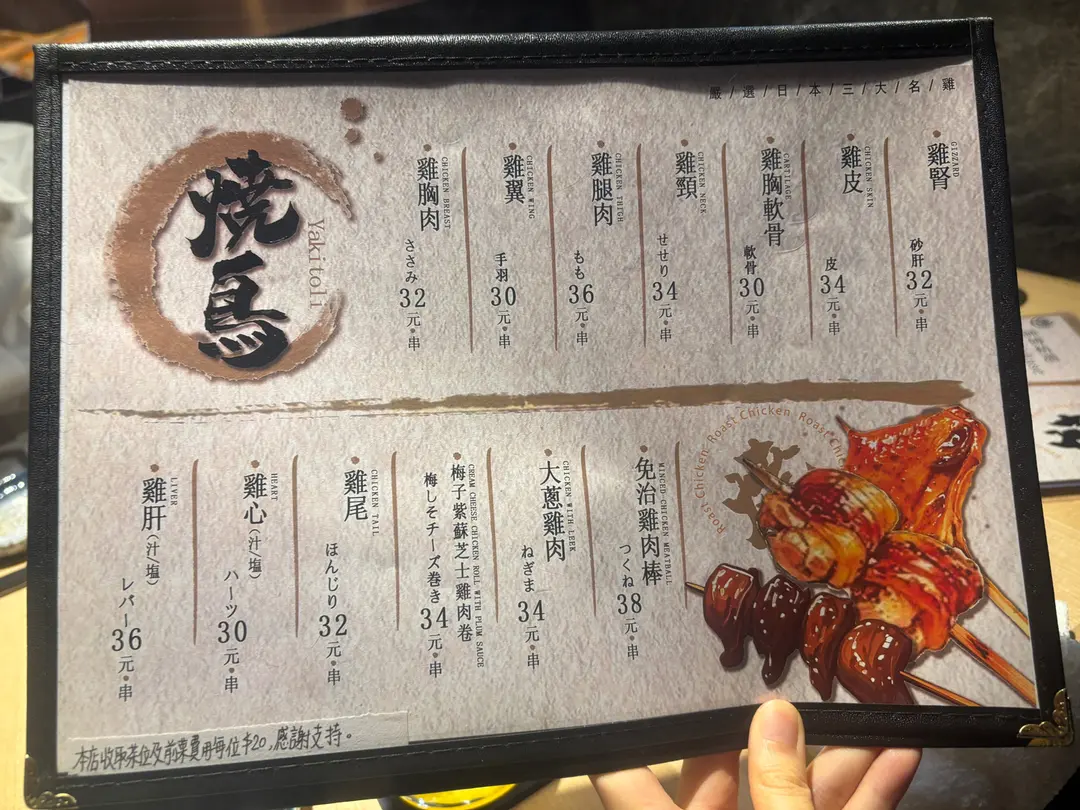 嚴/選/日/本/三/大/名/雞
燒鳥
Yakitoli
雞腎
GIZZARD
砂肝
32元•串
雞皮
CHICKEN SKIN
皮
34元•串
雞胸軟骨
CARTILAGE
軟骨
30元•串
雞頸
CHICKEN NECK
せせり
34元•串
雞腿肉
CHICKEN THIGH
もも
36元•串
雞翼
CHICKEN WING
手羽
30元•串
雞胸肉
CHICKEN BREAST
ささみ
32元•串
Roast Chicken Roast Chicken Roast Chi
免治雞肉棒
MINCED CHICKEN MEATBALL
つくね
38元•串
大蔥雞肉
CHICKEN WITH LEEK
ねぎま
34元•串
梅子紫蘇芝士雞肉卷
CREAM CHEESE CHICKEN ROLL WITH PLUM SAUCE
梅しそチーズ巻き
34元•串
雞尾
CHICKEN TAIL
ほんじり
32元•串
雞心(汁/塩)
HEART
ハーツ
30元•串
雞肝(汁/塩)
LIVER
レバー
36元•串
本店收取茶位及前菜費用每位$20,感謝支持。